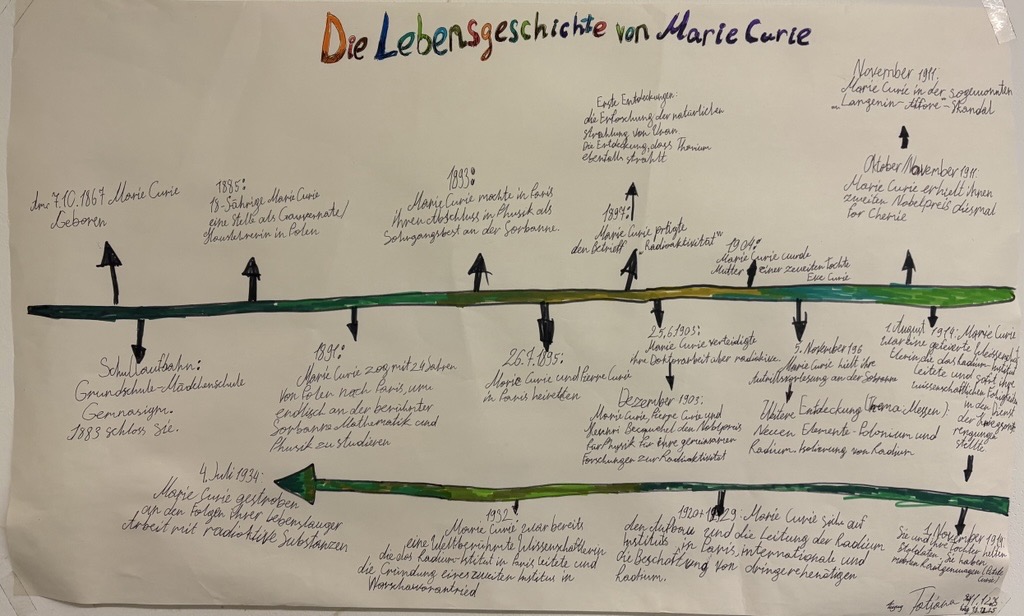 Die Lebensgeschichte von Marie Curie
7.10.1867 Marie Curie
Geboren
1885:
18-Jährige Marie Curie
eine Stelle als Gauvernate/
in Polen
1893:
Marie Curie machte in Paris
ihren Abschluss in Physik als
an der Sorbanne.
Erste Entdeckungen:
die Erforschung der natürlichen
strahlung von Uran
Die Entdeckung, dass Thorium
ebenfalls strahlt
1897:
Marie Curie prägte
den Betrieff „Radioaktivität“
1904:
Marie Curie wurde
Mutter einer zweiten Tochte
Eve Curie
November 1911:
Marie Curie in der sogenonnten
„Langenin-Affäre“-Skandal
Oktober/November 1911:
Marie Curie erhielt ihnen
zweiten Nobelpreis diesmal
for Chemie
Schullaufbahn:
Grundschule-Mädchenschule
Gemnasigm.
1883 schloss Sie.
1891:
Marie Curie zog mit 24 Jahren
von Polen nach Paris, um
endlisch an der berühmter
Sorbanne Mathematik und
Physik zu studieren
26.7.1895:
Marie Curie und Pierre Curie
in Paris heiretten
25.6.1903:
Marie Curie verteidigte
ihre Doktorarbeit über
Dezember 1903:
Marie Curie, Pierre Curie und
Henri Becquehel den Nobelpreis
für Physik für ihre gemeinsamer
Forschungen zur Radioaktivität
5. November 196
Marie Curie hielt ihre
Antrittsvorlesung an der Sorbanne
Weitere Entdeckung (Thoma:Messen):
Neuen Elemente-Polonium und
Radium. Isolierung von Radium
1. August 1914: Marie Curie
war eine gefeierte
leitete und
in den Dienst
der
stellte
4. Juli 1934:
Marie Curie gestroben
an den Folgen ihrer Lebenslanger
Arbeit mit radioktive Substanzen
1932:
Marie Curie war bereits
eine Weltberühmte Wissenschaftlerin
die das Radium-Istitut in Paris leitete und
die Gründung eines zweiten Institus in
Worschau vorantried
1920+1929: Marie Curie sich auf
den Aufbau und die Leitung der Radium
Instituts in Paris, internationale und
die Beschaffung von dringerehenötigen
Radium.
1. November 1914
Sie und ihre Tochter
Soldaten, Sie haben
Tatjana